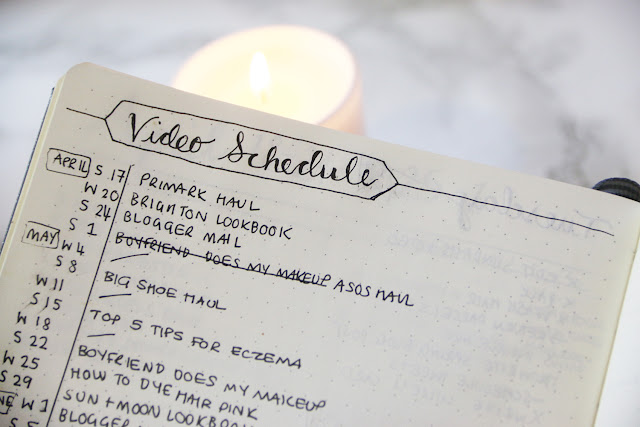 Video Schedule
APRIL S 17 PRIMARK HAUL
W 20 BRIGHTON LOOKBOOK
S 24 BLOGGER MAIL
MAY S 1 BOYFRIEND DOES MY MAKEUP ASOS HAUL
W 4 —
S 8 BIG SHOE HAUL
W 11 —
S 15 TOP 5 TIPS FOR ECZEMA
W 18 —
S 22 BOYFRIEND DOES MY MAKEUP
W 25 HOW TO DYE HAIR PINK
S 29 SUN + MOON LOOKBOOK
W 1 BLOGGER